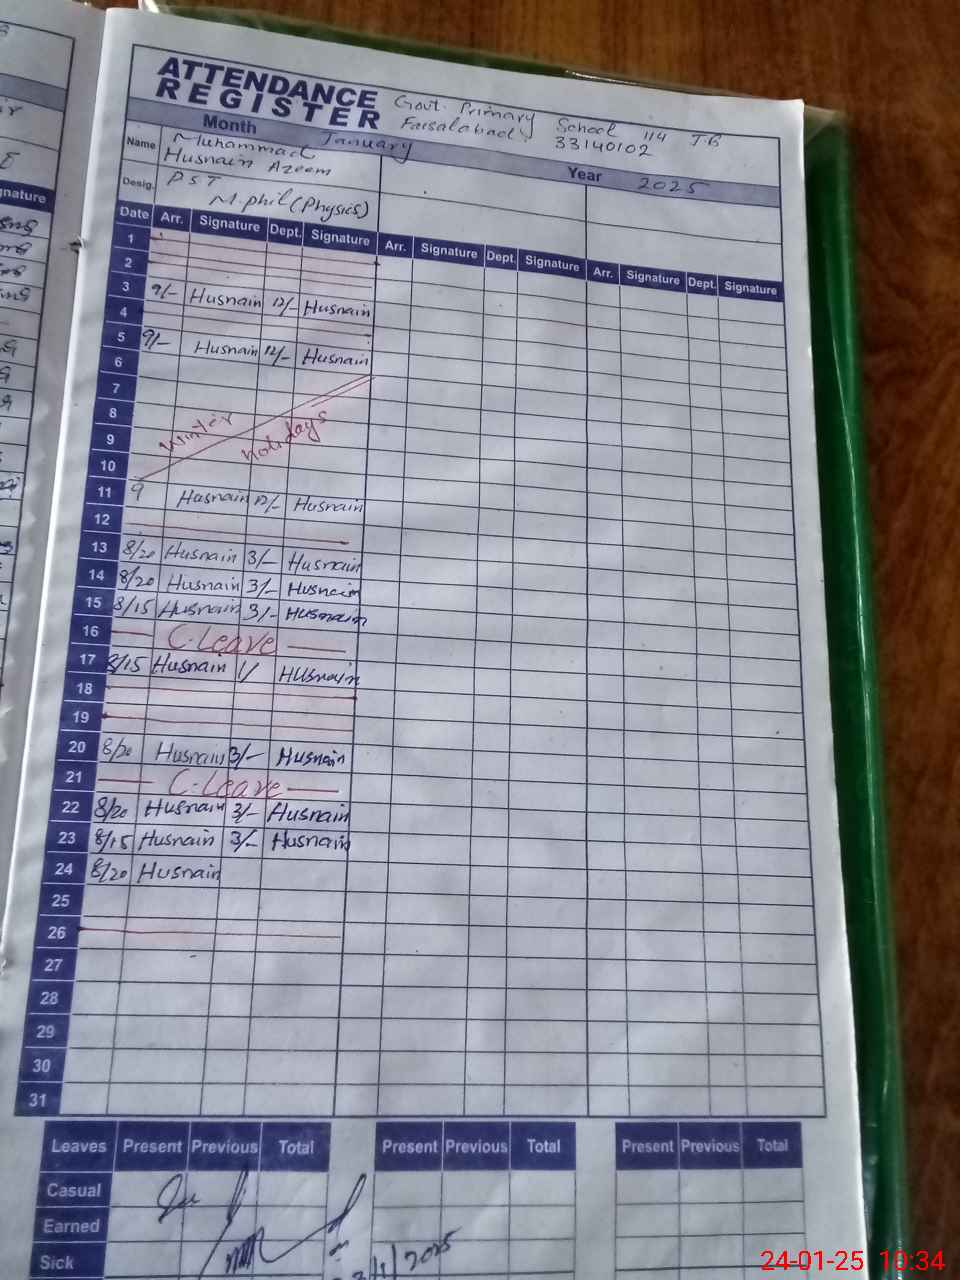 ATTENDANCE REGISTER
Govt. Primary School 114 J.B
Faisalabad 33140102
Month January Year 2025
Name Muhammad Husnain Azeem
Desig. PST M.phil (Physics)
Date Arr. Signature Dept. Signature Arr. Signature Dept. Signature Arr. Signature Dept. Signature
1
2
3 9/- Husnain 12/- Husnain
4
5 9/- Husnain 12/- Husnain
6
7
8
9
10
Winter Holidays
11 9 Husnain 12/- Husnain
12
13 8/20 Husnain 3/- Husnain
14 8/20 Husnain 3/- Husnain
15 8/15 Husnain 3/- Husnain
16 C.Leave
17 8/15 Husnain 1/ Husnain
18
19
20 8/20 Husnain 3/- Husnain
21 C.Leave
22 8/20 Husnain 3/- Husnain
23 8/15 Husnain 3/- Husnain
24 8/20 Husnain
25
26
27
28
29
30
31
Leaves Present Previous Total Present Previous Total Present Previous Total
Casual
Earned
Sick
24-01-25 10:34